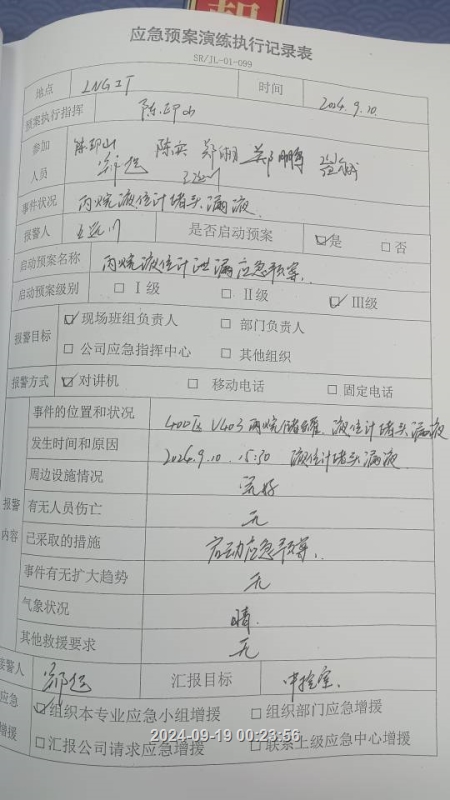 应急预案演练执行记录表
SR/JL-01-099
地点 LNG工厂 时间 2024.9.10
预案执行指挥 陈卬山
参加 陈卬山 陈实 郑湖 郑鹏
人员 郑恒
事件状况 丙烷液位计堵头漏液
报警人 是否启动预案 ☑是 □否
启动预案名称 丙烷液位计泄漏应急预案
启动预案级别 □Ⅰ级 □Ⅱ级 ☑Ⅲ级
报警目标 ☑现场班组负责人 □部门负责人
□公司应急指挥中心 □其他组织
报警方式 ☑对讲机 □移动电话 □固定电话
事件的位置和状况 400区V403丙烷储罐.液位计堵头漏液
发生时间和原因 2024.9.10..15:30 液位计堵头漏液
周边设施情况 完好
报警 有无人员伤亡 无
内容 已采取的措施 启动应急预案.
事件有无扩大趋势 无
气象状况 晴.
其他救援要求 无
接警人 郑恒 汇报目标 中控室.
应急 ☑组织本专业应急小组增援 □组织部门应急增援
增援 □汇报公司请求应急增援 □联系上级应急中心增援
2024-09-19 00:23:56